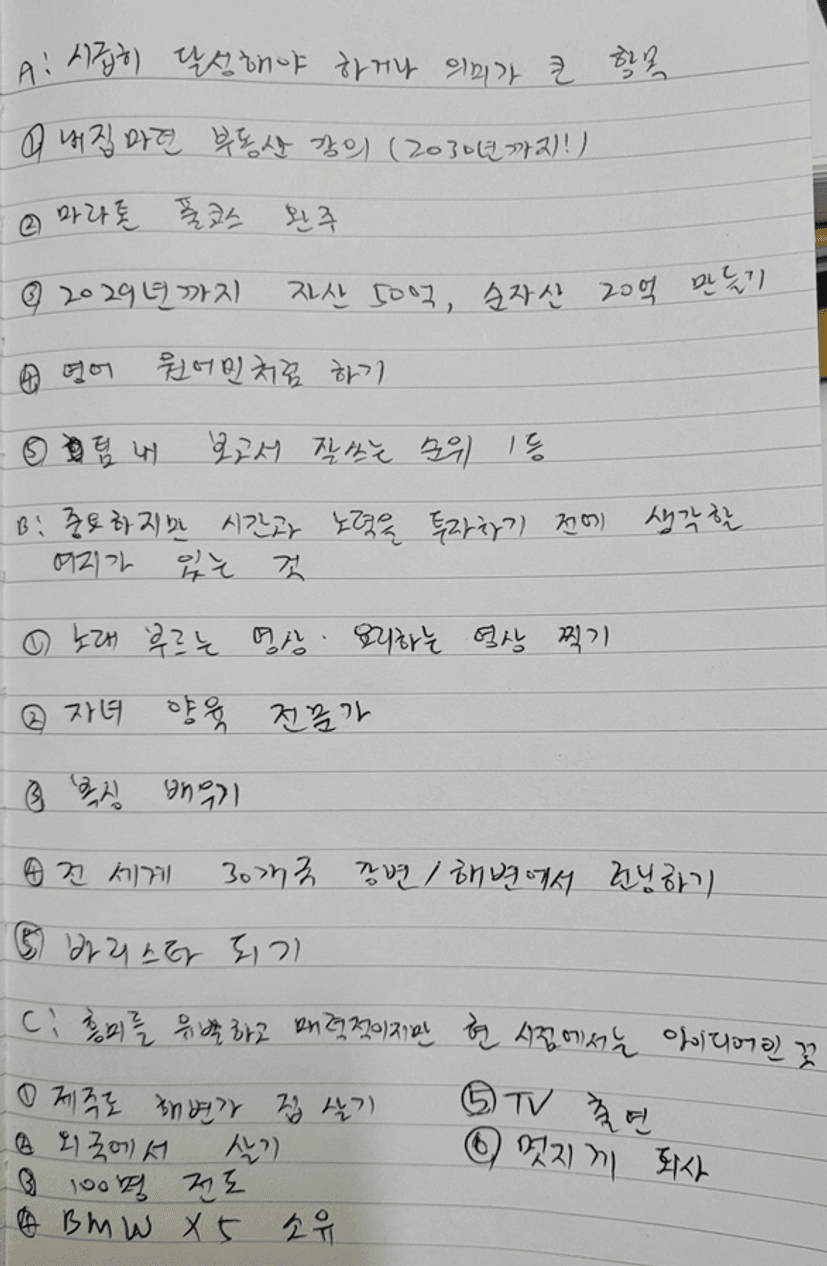 A: 시급히 달성해야 하거나 의미가 큰 항목
① 내집마련 부동산 강의 (2030년까지!)
② 마라톤 풀코스 완주
③ 2029년까지 자산 50억, 순자산 20억 만들기
④ 영어 원어민처럼 하기
⑤ 팀 내 보고서 잘쓰는 순위 1등
B: 중요하지만 시간과 노력을 투자하기 전에 생각할
여지가 있는 것
① 노래 부르는 영상· 요리하는 영상 찍기
② 자녀 양육 전문가
③ 복싱 배우기
④ 전 세계 30개국 강변/해변에서 런닝하기
⑤ 바리스타 되기
C: 흥미를 유발하고 매력적이지만 현 시점에서는 아이디어인 꿈
① 제주도 해변가 집 살기
② 외국에서 살기
③ 100명 전도
④ BMW X5 소유
⑤ TV 출연
⑥ 멋지게 퇴사